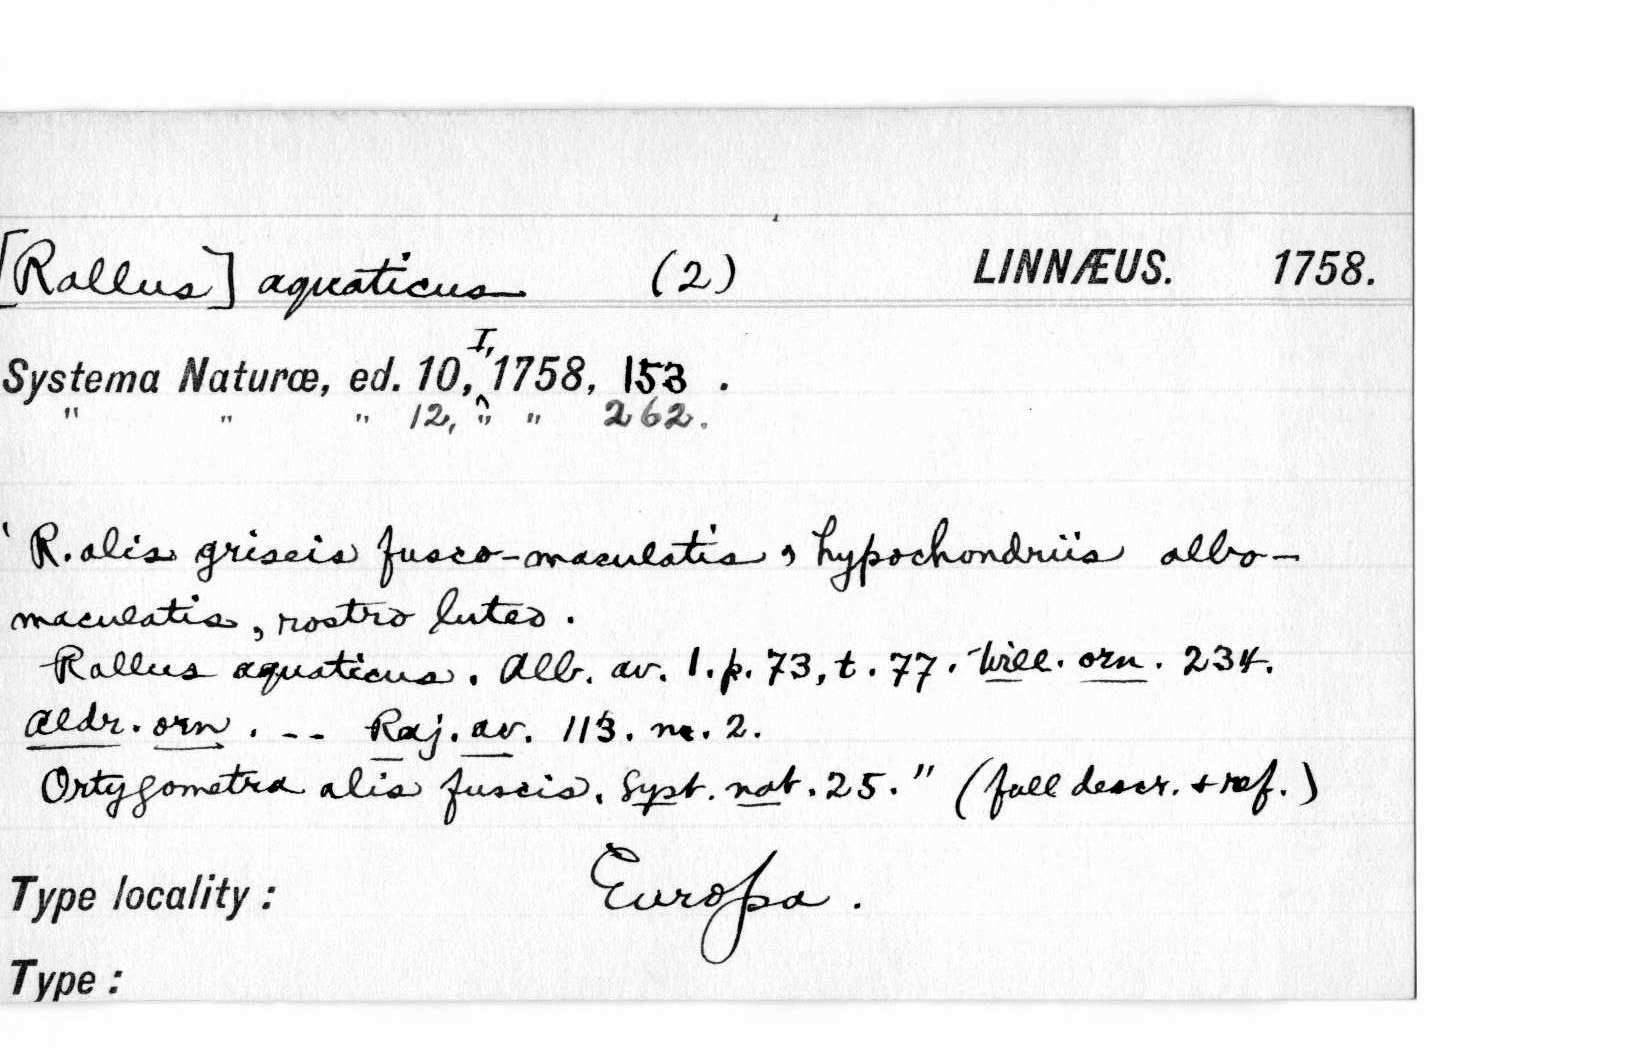 [Rallus] aquaticus (2) LINNÆUS. 1758.
Systema Naturæ, ed. 10, I, 1758, 153 .
" " " 12, " " 262.
' R. alis griseis fusco-maculatis, hypochondriis albo-
maculatis, rostro luteo.
Rallus aquaticus. Alb. av. 1. p. 73, t. 77. Will. orn. 234.
Aldr. orn. -- Raj. av. 113. n. 2.
Ortygometra alis fuscis. Syst. nat. 25." (full descr. + ref.)
Type locality: Europa.
Type: